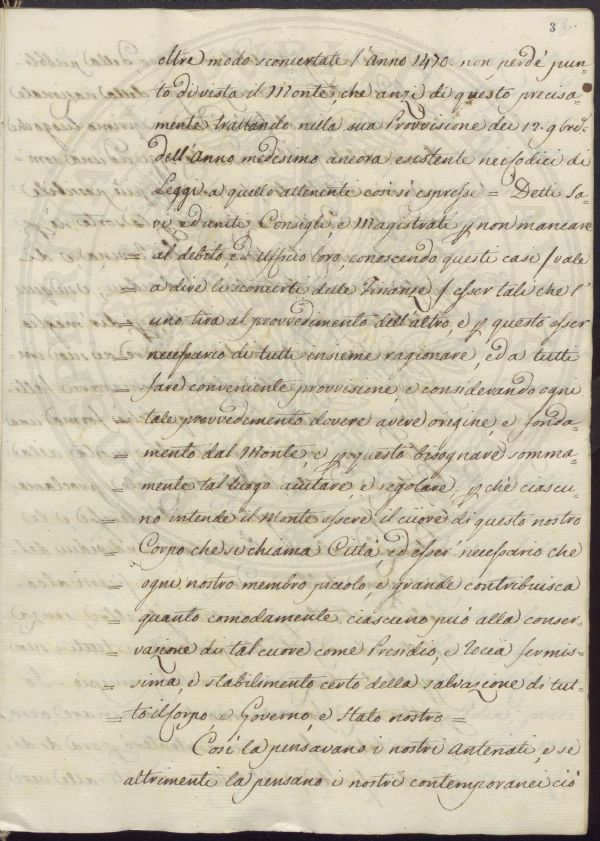 3
oltre modo sconcertate l'Anno 1470. non perdé pun-
to di vista il Monte, che anzi di questo precisa-
mente trattando nella sua Provvisione dei 12. 9bre
dell'Anno medesimo ancora esistente nei Codici di
Leggi a quello attenente così si espresse = Detti Sa-
vi, ed uniti Consigli, e Magistrati p non mancare
= al debito, ed Uffizio loro, conoscendo questi casi / vale
= a dire li sconcerti delle Finanze / esser tali che l'
= uno tira al provvedimento dell'altro, e p questo esser
= necessario di tutti insieme ragionare, ed a tutti
= fare conveniente provvisione, e considerando ogni
= tale provvedimento dovere avere origine, e fonda-
= mento dal Monte, e p questo bisognare somma-
= mente tal luogo aiutare, e regolare, p chè ciascu-
= no intende il Monte essere il cuore di questo nostro
= Corpo che si chiama Città, ed esser necessario che
= ogni nostro membro piccolo, e grande contribuisca
= quanto comodamente ciascuno può alla conser-
= vazione di tal cuore come Presidio, e Rocca fermis-
= sima, e stabilimento certo della salvazione di tut-
= to il Corpo, e Governo, e Stato nostro =
Così la pensavano i nostri Antenati, e se
altrimenti la pensano i nostri contemporanei ciò